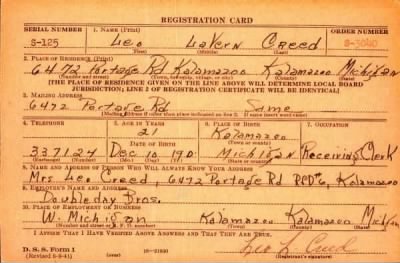 REGISTRATION CARD
SERIAL NUMBER 1. NAME (Print) ORDER NUMBER
S-125 Leo LaVern Creed S-3040
(First) (Middle) (Last)
2. PLACE OF RESIDENCE (Print)
6472 Portage Rd Kalamazoo Kalamazoo Michigan
(Number and street) (Town, township, village, or city) (County) (State)
[THE PLACE OF RESIDENCE GIVEN ON THE LINE ABOVE WILL DETERMINE LOCAL BOARD
JURISDICTION; LINE 2 OF REGISTRATION CERTIFICATE WILL BE IDENTICAL]
3. MAILING ADDRESS
6472 Portage Rd Same
[Mailing address if other than place indicated on line 2. If same insert word same]
4. TELEPHONE 5. AGE IN YEARS 6. PLACE OF BIRTH 7. OCCUPATION
21 Kalamazoo
DATE OF BIRTH (Town or county)
337127 Dec 10 19 Michigan Receiving Clerk
(Exchange) (Number) (Mo.) (Day) (Yr.) (State or country)
8. NAME AND ADDRESS OF PERSON WHO WILL ALWAYS KNOW YOUR ADDRESS
Mrs. Leo Creed, 6472 Portage Rd Kalamazoo
9. EMPLOYER'S NAME AND ADDRESS
Doubleday Bros.
10. PLACE OF EMPLOYMENT OR BUSINESS
W. Michigan Kalamazoo Kalamazoo Mich
(Number and street or R. F. D. number) (Town) (County) (State)
I AFFIRM THAT I HAVE VERIFIED ABOVE ANSWERS AND THAT THEY ARE TRUE.
D. S. S. Form 1 Leo L. Creed
(Revised 6-9-41) 16-21630 (Registrant's signature)